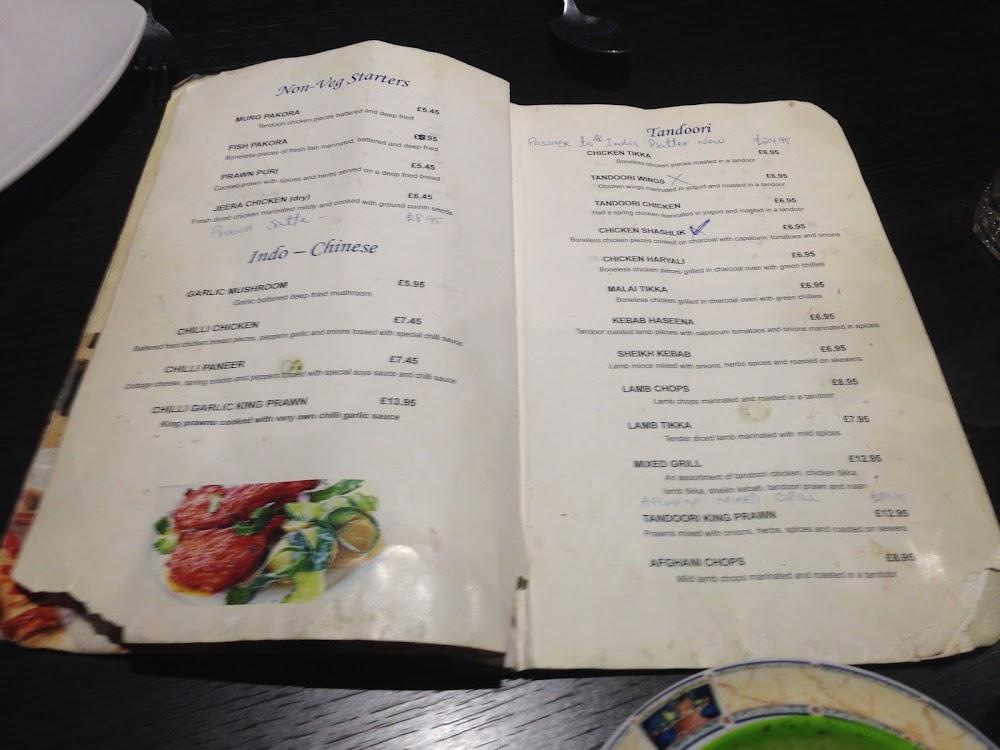 Non-Veg Starters
MURG PAKORA £5.45
Tandoori chicken pieces battered and deep fried
FISH PAKORA £8.95
Boneless pieces of fresh fish marinated, battered and deep fried
PRAWN PURI £5.45
Cooked prawn with spices and herbs served on a deep fried bread
JEERA CHICKEN (dry) £6.45
Fresh diced chicken marinated mildly and cooked with ground cumin seeds
Prawn - £8.95
Indo – Chinese
GARLIC MUSHROOM £5.95
Garlic battered deep fried mushroom
CHILLI CHICKEN £7.45
Battered fried chicken breast pieces, peppers garlic and onions tossed with special chilli sauce
CHILLI PANEER £7.45
Cottage cheese, spring onions and peppers tossed with special soya sauce and chilli sauce
CHILLI GARLIC KING PRAWN £13.95
King prawns cooked with very own chilli garlic sauce
Tandoori
Passage to India Platter New £24.95
CHICKEN TIKKA £6.95
Boneless chicken pieces roasted in a tandoor
TANDOORI WINGS £6.95
Chicken wings marinated in yogurt and roasted in a tandoor
TANDOORI CHICKEN £6.95
Half a spring chicken marinated in yogurt and roasted in a tandoor
CHICKEN SHASHLIK £6.95
Boneless chicken pieces cooked on charcoal with capsicum, tomatoes and onions
CHICKEN HARYALI £6.95
Boneless chicken pieces grilled in charcoal oven with green chillies
MALAI TIKKA £6.95
Boneless chicken grilled in charcoal oven with green chillies
KEBAB HASEENA £6.95
Tandoor roasted lamb pieces with capsicum tomatoes and onions marinated in spices
SHEIKH KEBAB £6.95
Lamb mince mixed with onions, herbs spices and roasted on skewers
LAMB CHOPS £8.95
Lamb chops marinated and roasted in a tandoor
LAMB TIKKA £7.95
Tender diced lamb marinated with mild spices
MIXED GRILL £12.95
An assortment of tandoori chicken, chicken tikka,
lamb tikka, sheikh kebab, tandoori prawn and naan
AFGHANI MIXED GRILL
TANDOORI KING PRAWN £12.95
Prawns mixed with onions, herbs, spices and roasted on sewers
AFGHANI CHOPS £8.95
Mild lamb chops marinated and roasted in a tandoor